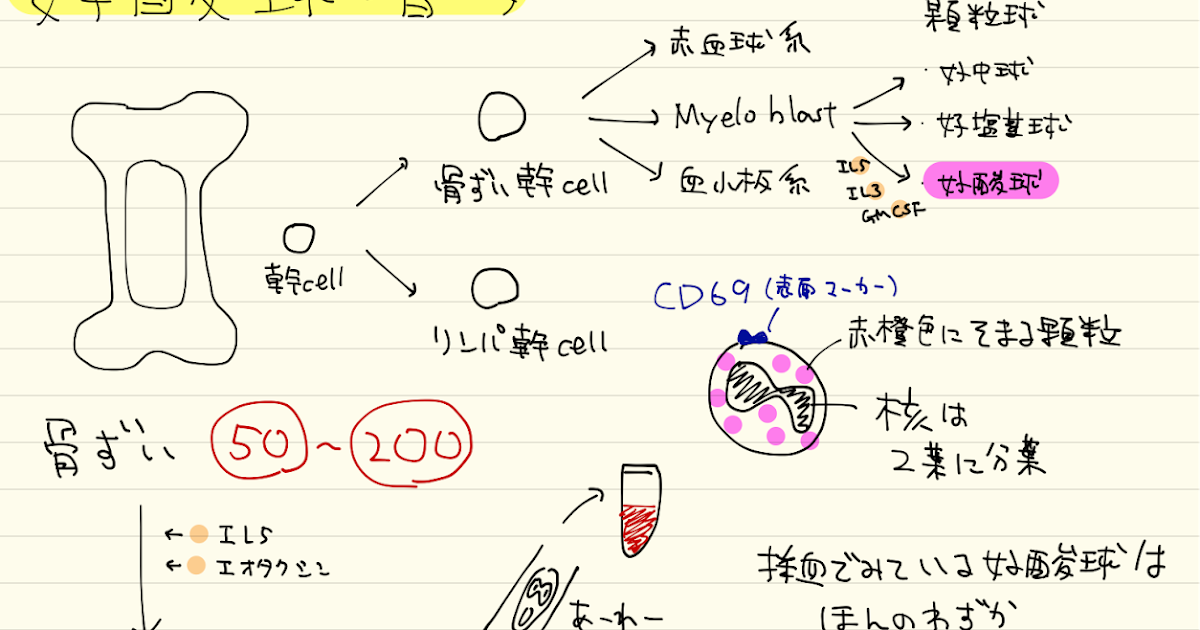 顆粒球
赤血球系
・好中球
Myeloblast
・好塩基球
骨ずい幹cell
血小板系
IL5
IL3
GMCSF
・好酸球
幹cell
リンパ幹cell
CD69(表面マーカー)
赤橙色にそまる顆粒
核は
2葉に分葉
骨ずい 50~200
← IL5
← エオタクシン
採血でみている好酸球は
ほんのわずか
あーれー